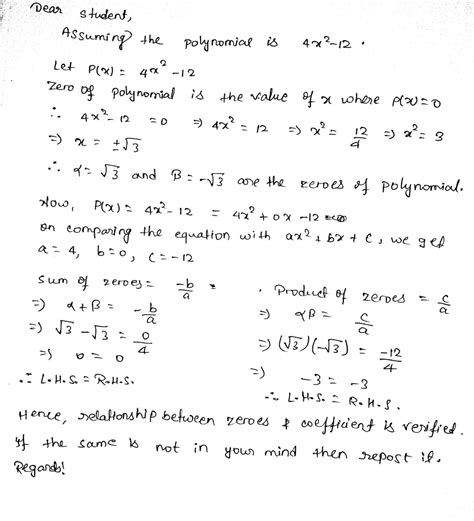 Dear student,
Assuming the polynomial is 4x²-12.
Let P(x) = 4x²-12
Zero of polynomial is the value of x where P(x)=0
∴ 4x²-12 =0 ⇒ 4x² = 12 ⇒ x² = 12/4 ⇒ x² = 3
⇒ x = ±√3
∴ α=√3 and β=-√3 are the zeroes of polynomial.
Now, P(x) = 4x²-12 = 4x²+0x-12
on comparing the equation with ax²+bx+c, we get
a=4, b=0, c=-12
Sum of zeroes = -b/a
⇒ α+β = -b/a
⇒ √3-√3 = 0/4
⇒ 0 = 0
∴ L.H.S. = R.H.S.
. Product of zeroes = c/a
⇒ αβ = c/a
⇒ (√3)(-√3) = -12/4
⇒ -3 = -3
∴ L.H.S. = R.H.S.
Hence, relationship between zeroes & coefficient is verified.
If the same is not in your mind then repost it.
Regards!